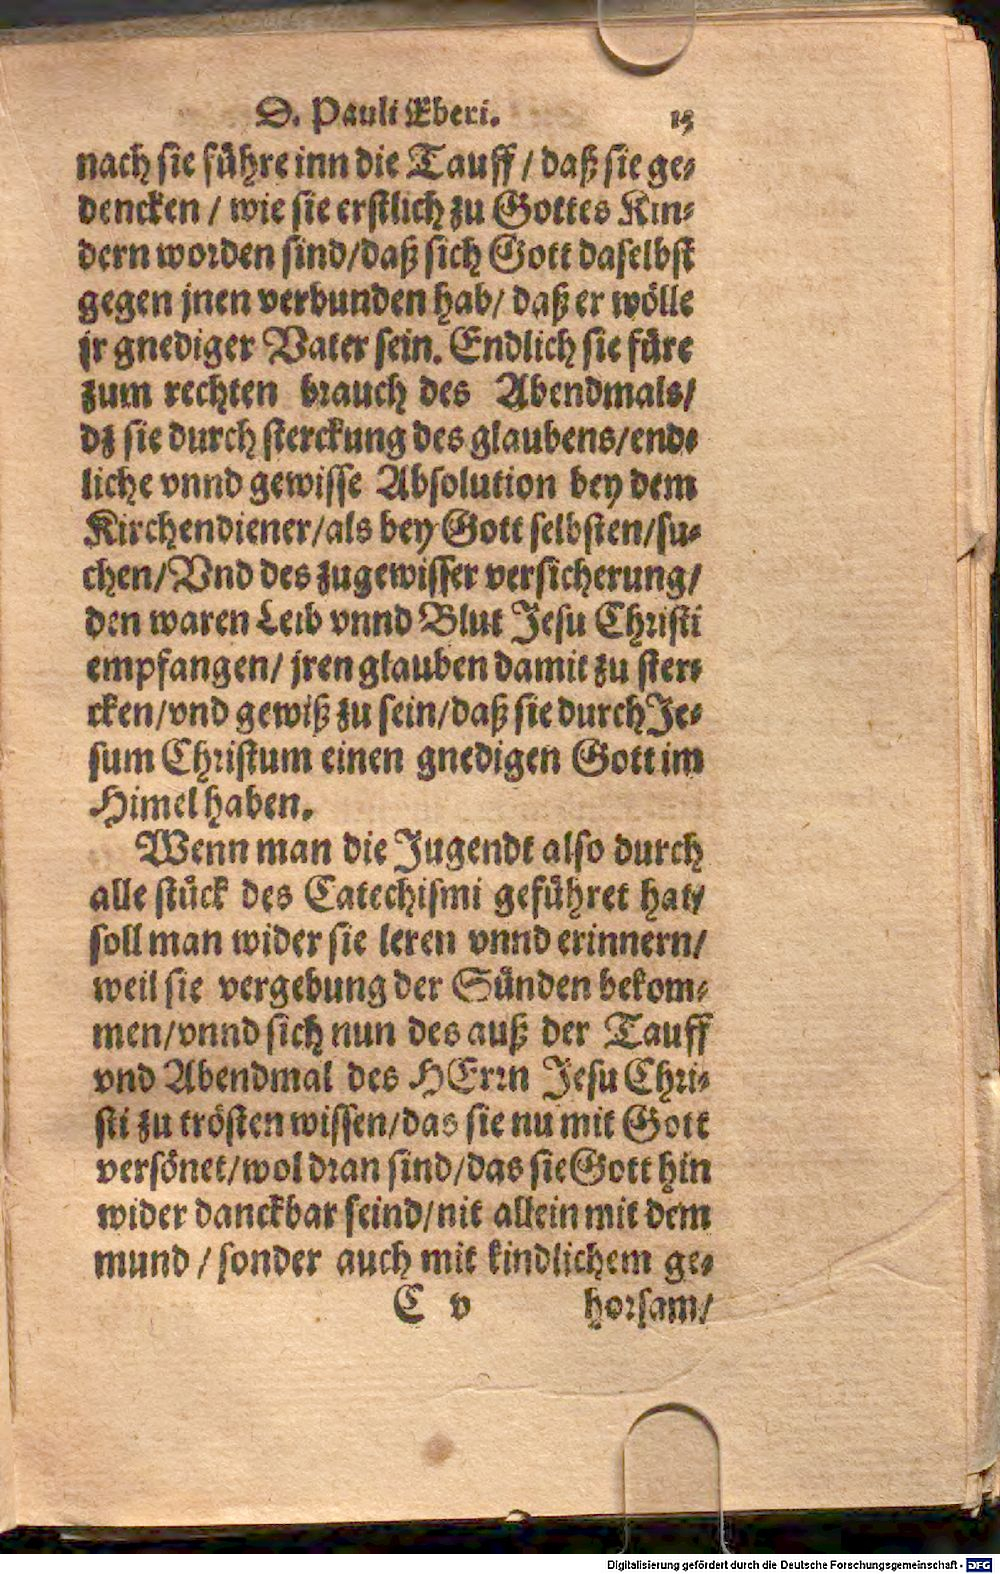 D. Pauli Eberi. 15
nach sie führe inn die Tauff / daß sie ge-
dencken / wie sie erstlich zu Gottes Kin-
dern worden sind/daß sich Gott daselbst
gegen jnen verbunden hab/ daß er wölle
jr gnediger Vater sein. Endlich sie füre
zum rechten brauch des Abendmals/
dz sie durch sterckung des glaubens/end-
liche vnnd gewisse Absolution bey dem
Kirchendiener/als bey Gott selbsten/su-
chen/Vnd des zugewisser versicherung/
den waren Leib vnnd Blut Jesu Christi
empfangen/ jren glauben damit zu ster-
cken/vnd gewiß zu sein/daß sie durch Je-
sum Christum einen gnedigen Gott im
Himel haben.
Wenn man die Jugendt also durch
alle stück des Catechismi geführet hat/
soll man wider sie leren vnnd erinnern/
weil sie vergebung der Sünden bekom-
men/vnnd sich nun des auß der Tauff
vnd Abendmal des HErrn Jesu Chri-
sti zu trösten wissen/das sie nu mit Gott
versönet/wol dran sind/das sie Gott hin
wider danckbar seind/nit allein mit dem
mund / sonder auch mit kindlichem ge-
C v horsam/
Digitalisierung gefördert durch die Deutsche Forschungsgemeinschaft - DFG